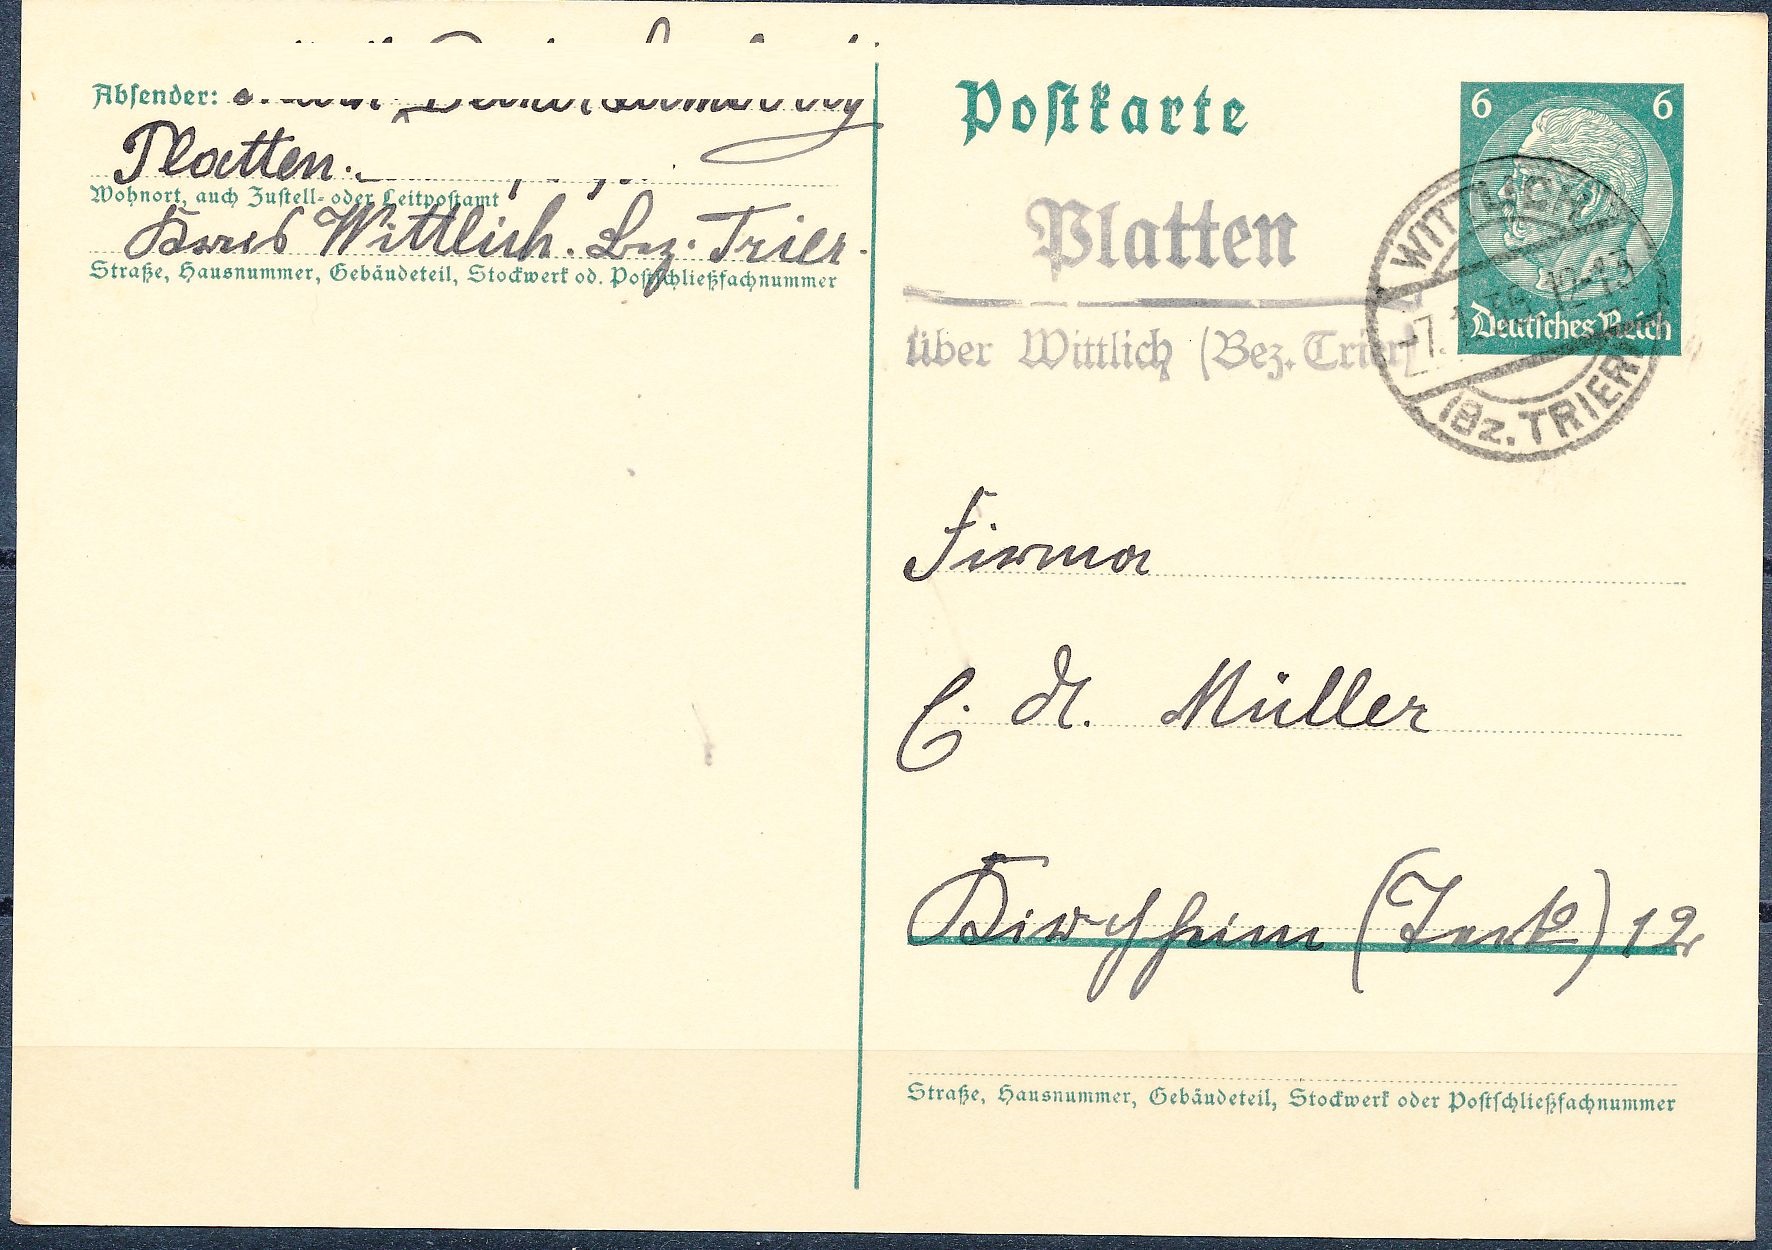 Absender:
Platten.
Wohnort, auch Zustell- oder Leitpostamt
Kreis Wittlich. Bez. Trier.
Straße, Hausnummer, Gebäudeteil, Stockwerk od. Postschließfachnummer
Postkarte
6 6
Deutsches Reich
Platten
über Wittlich (Bez. Trier)
WITTLICH
-7. 35. 12-13
(Bz. TRIER)
Firma
C. A. Müller
Kirchheim (Teck) 12
Straße, Hausnummer, Gebäudeteil, Stockwerk oder Postschließfachnummer